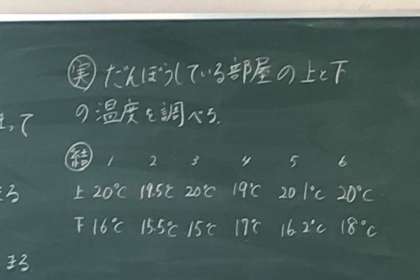 実 だんぼうしている部屋の上と下
の温度を調べる。
って
結 1 2 3 4 5 6
上 20℃ 19.5℃ 20℃ 19℃ 20.1℃ 20℃
下 16℃ 15.5℃ 15℃ 17℃ 16.2℃ 18℃
まる